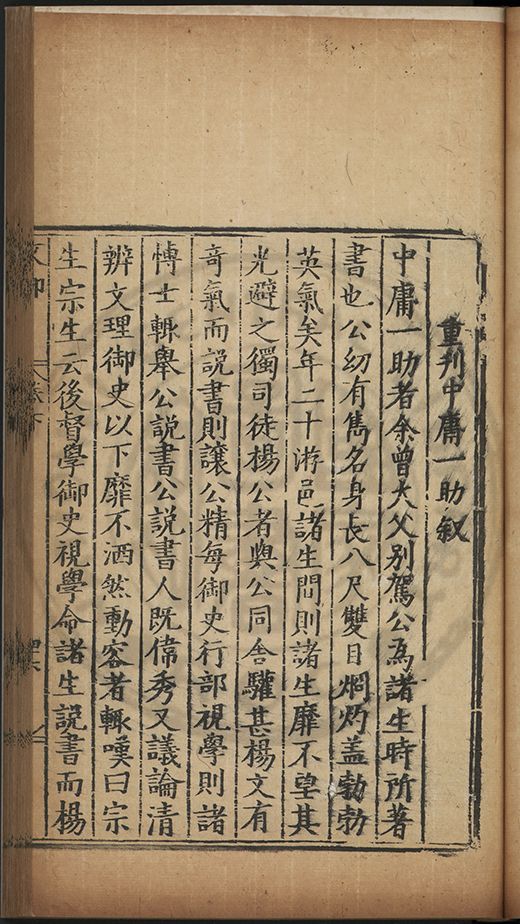 重刊中庸一助叙
中庸一助者余曾大父别駕公為諸生時所著
書也公幼有雋名身長八尺雙目炯灼盖勃勃
英氣矣年二十游邑諸生間則諸生靡不望其
光避之獨司徒楊公者與公同舍驩甚楊文有
竒氣而説書則讓公精每御史行部視學則諸
愽士輙舉公説書公説書人既偉秀又議論清
辨文理御史以下靡不洒然動容者輙嘆曰宗
生宗生云後督學御史視學命諸生説書而楊